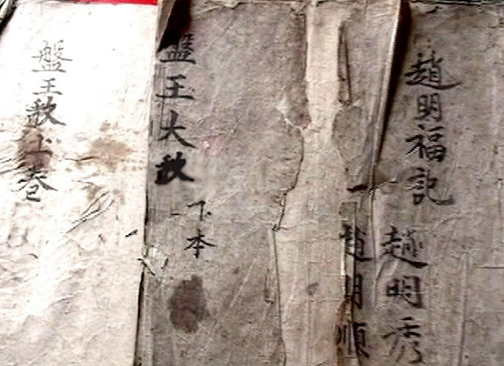 盤王歌上卷
盤王大歌
下本
趙明福記
趙明秀
趙明順